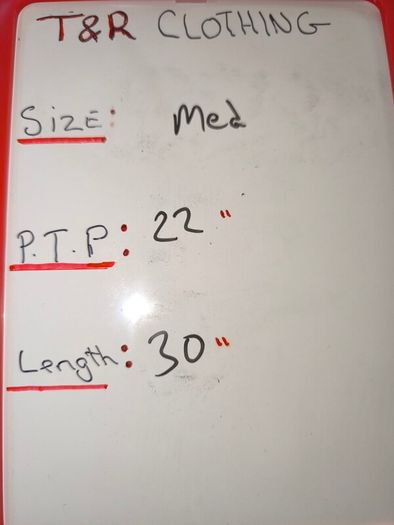 T&R CLOTHING
SizE: Med
P.T.P: 22"
Length: 30"